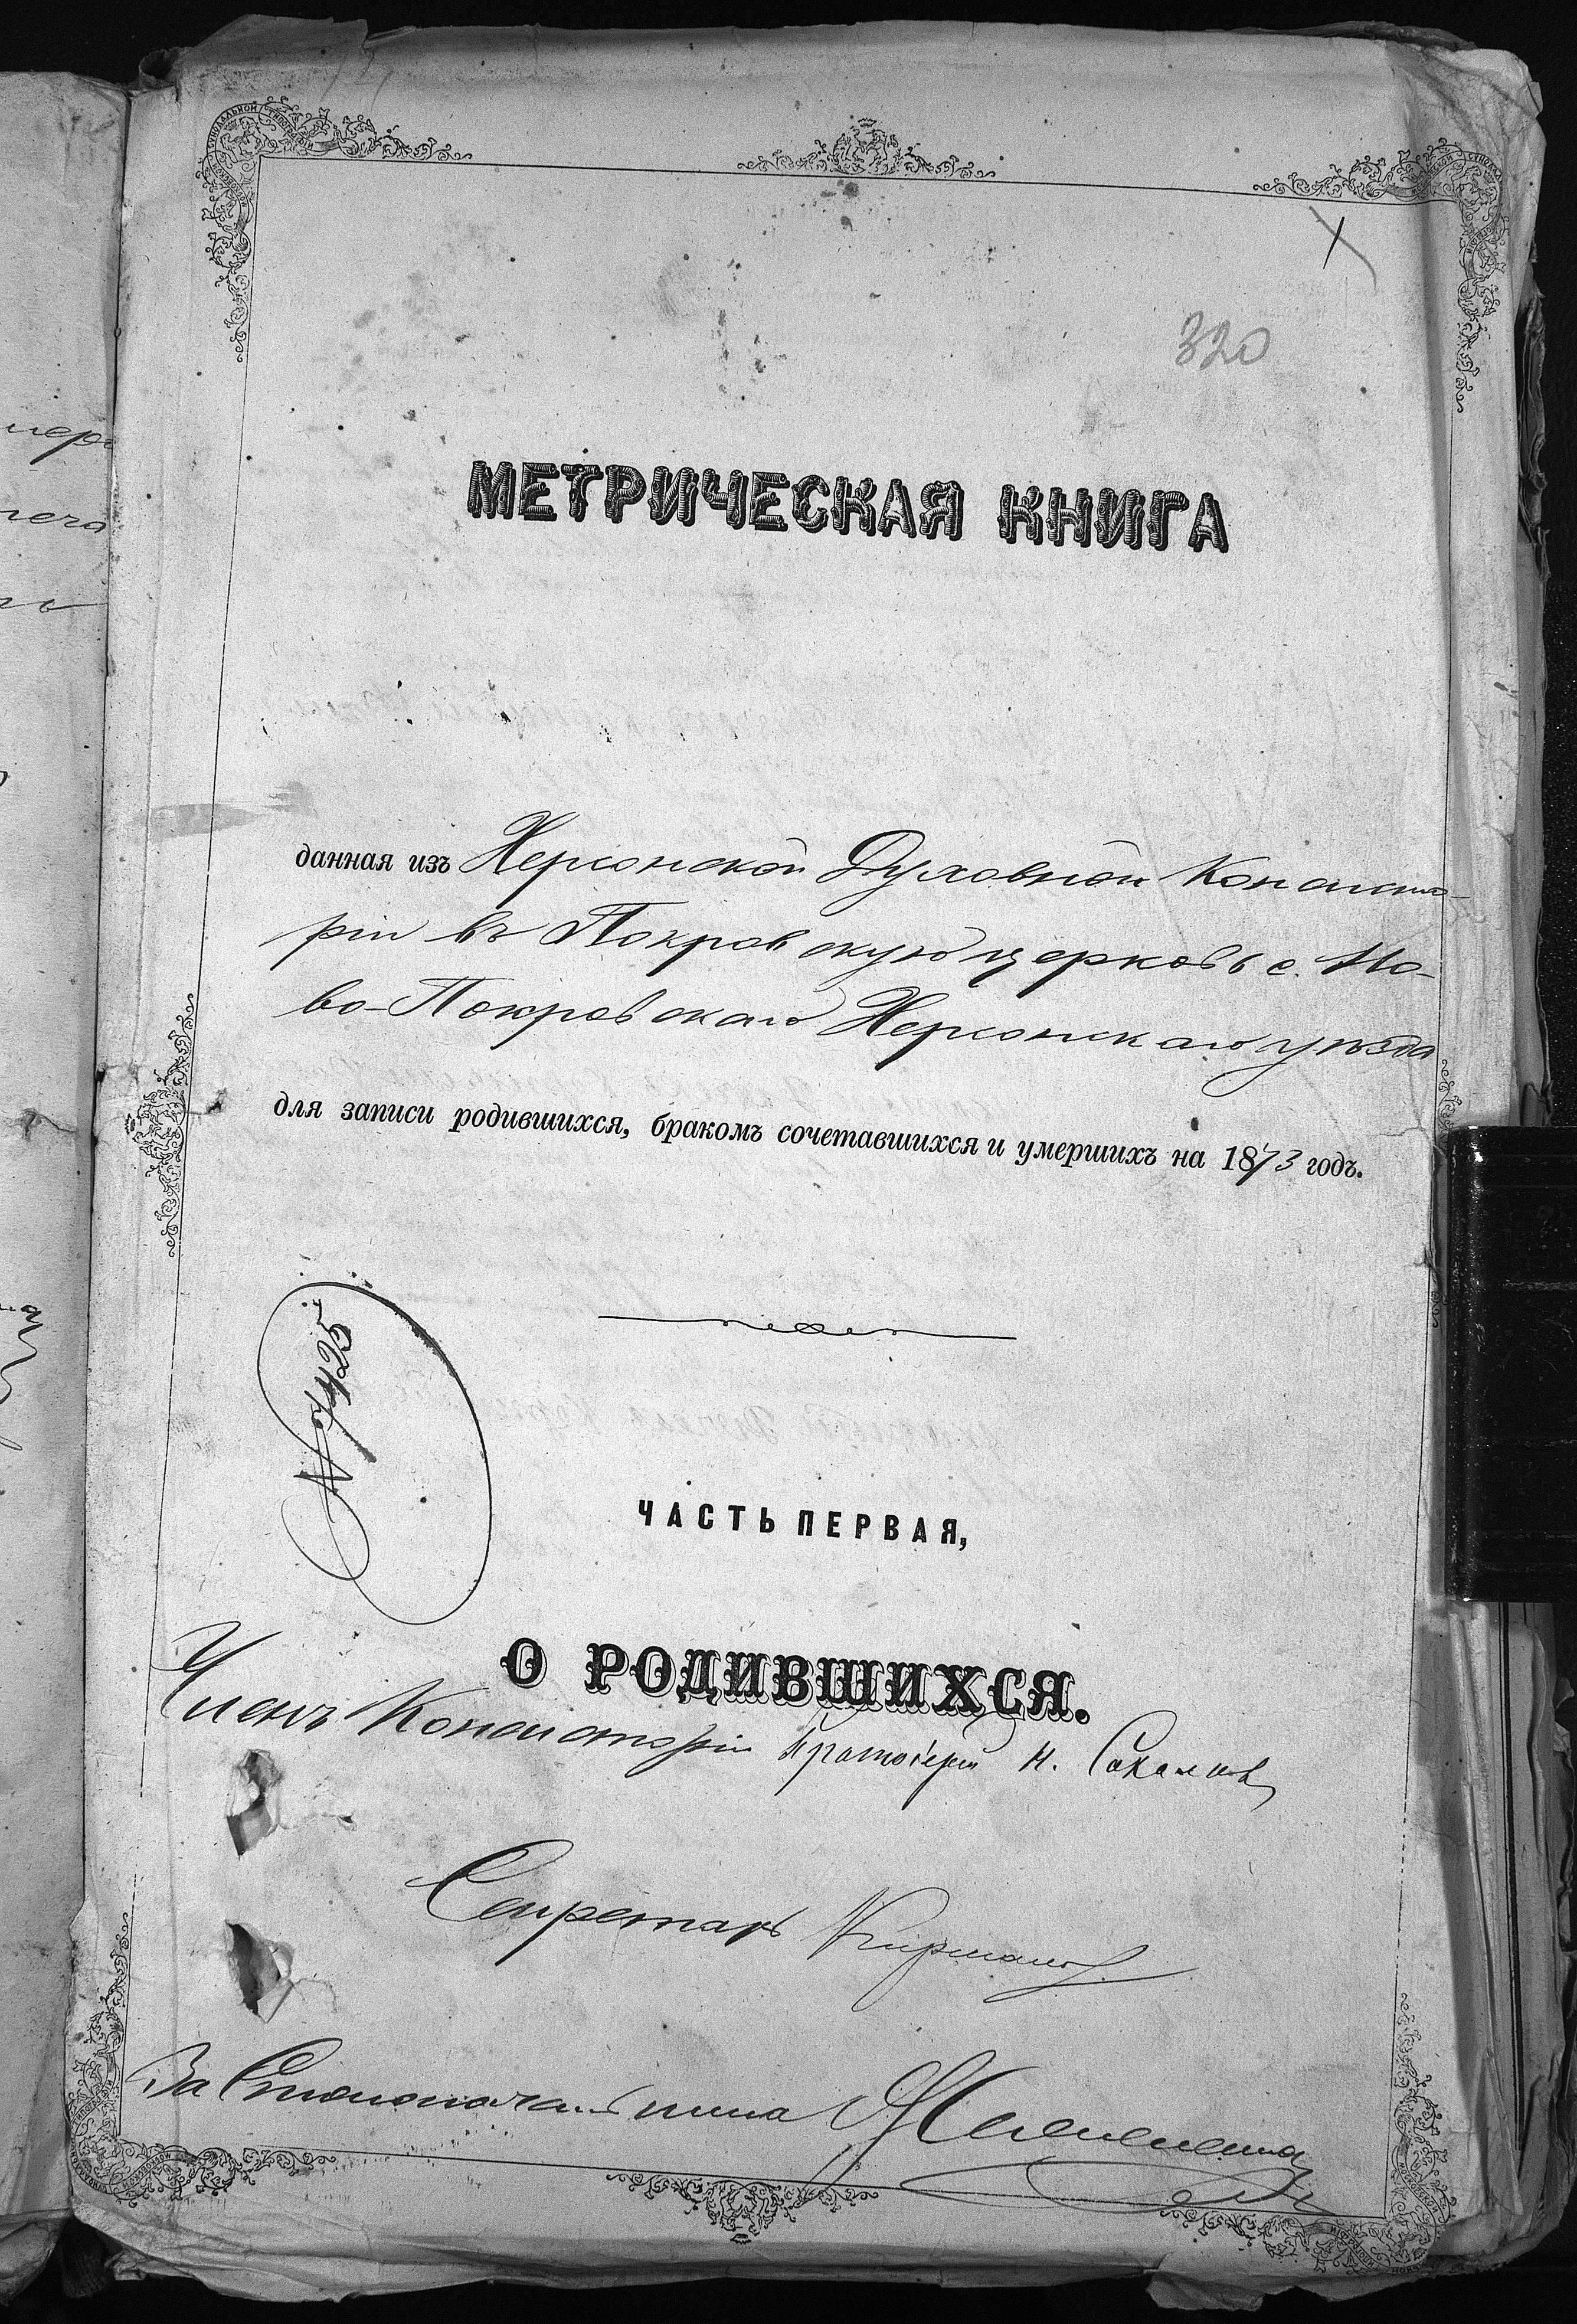 1
320
МЕТРИЧЕСКАЯ КНИГА
данная изъ Херсонской Духовной Консисто-
ріи въ Покровскую церковь с. Но-
во-Покровскаго Херсонскаго уѣзда
для записи родившихся, бракомъ сочетавшихся и умершихъ на 1873 годъ.
№ 7425
ЧАСТЬ ПЕРВАЯ,
О РОДИВШИХСЯ.
Членъ Консисторіи Протоіерей Н. Соколовъ
Секретарь
За Столоначальника